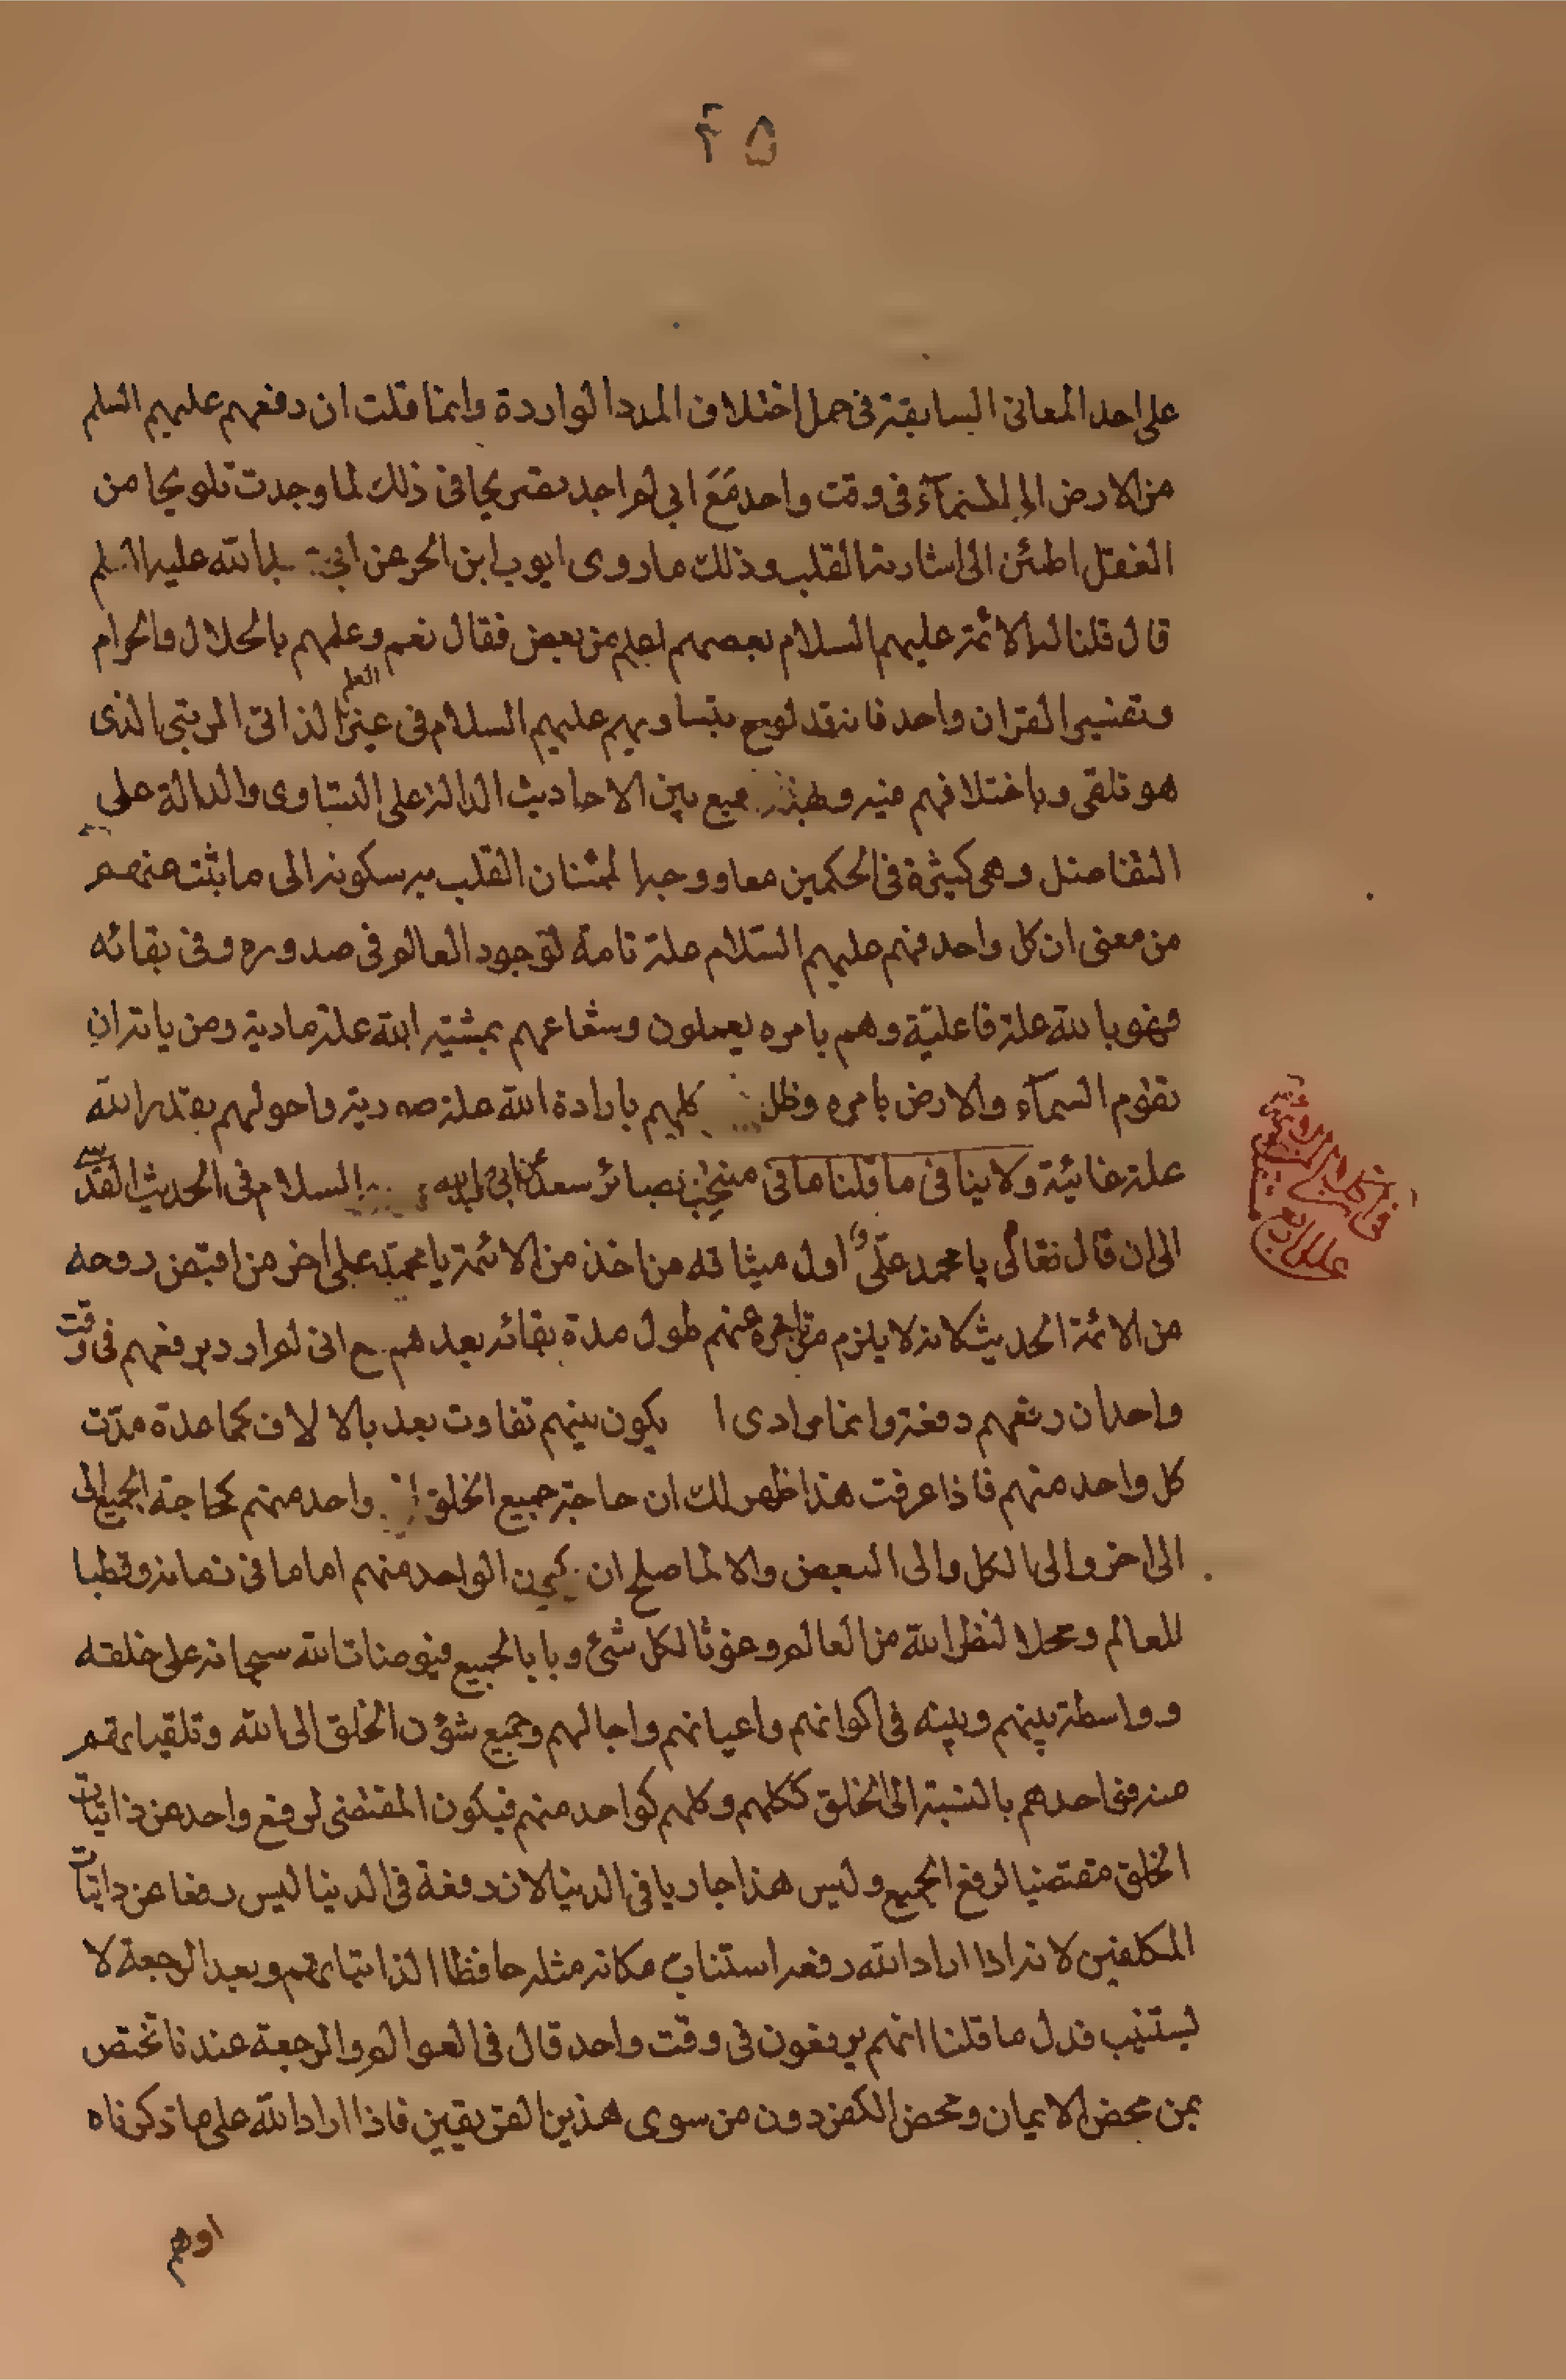 ٤٥
على احد المعانى السابقة فى حمل اختلاف المدد الواردة وانما قلت ان دفعهم عليهم السلم
من الارض الى السمآء فى وقت واحد مَعَ انى لم اجد تصريحا فى ذلك لما وجدت تلويحا من
النقل اطمئن الى اشارته القلب وذلك ما روى ايوب ابن الحر عن ابى الله عليه السلم
قال قلنا له الائمة عليهم السلام بعضهم اعلم من بعض فقال نعم وعلمهم بالحلال والحرام
وتفسير القران واحد فانه قد لوح بتساويهم عليهم السلام فى عين العلم الذاتى الرتبى الذى
هو تلقى وباختلافهم فيه وبهذا جمع بين الاحاديث الدالة على التساوى والدالة على
التفاضل وهى كثيرة فى الحكمين معا ووجه اطمئنان القلب به سكونه الى ما ثبت عنهم
من معنى ان كل واحد منهم عليهم السّلام علة تامة لوجود العالم فى صدوره وفى بقائه
فهو بالله علة فاعليّة وهم بامره يعملون وشعاعهم بمشيّة الله علة مادية ومن ياته ان
تقوم السمآء والارض بامره وظل كلهم بارادة الله علة صورية واحوالهم بقدر الله
علة غائية ولا ينافى ما قلنا ما فى منتخب بصائر سعد عن ابى عبدالله السلام فى الحديث القدسى
الى ان قال تعالى يا محمد علىّ اول ميثاقه من اخذ من الائمة يا محمد على اخر من اقبض روحه
من الائمة الحديث لانه لا يلزم من تاخره عنهم طول مدة بقائه بعدهم ح انى لم ارد برفعهم فى وقت
واحد ان رفعهم دفعة وانما مرادى ا يكون بينهم تفاوت بعد بالالاف كما عدة مدّت
كل واحد منهم فاذا عرفت هذا ظهر لك ان حاجة جميع الخلق واحد منهم كحاجة الجميع الى
الى اخر والى الكل والى البعض والا لما صلح ان يكون الواحد منهم اماما فى زمانه وقطبا
للعالم ومحلا لنظر الله من العالم وغوثا لكل شئ وبابا لجميع فيوضات الله سبحانه على خلقه
وواسطة بينهم وبينه فى اكوانهم واعيانهم واجالهم وجميع شؤن الخلق الى الله وتلقياتهم
منه فى احدهم بالنسبة الى الخلق ككلهم وكلهم كواحد منهم فيكون المقتضى لرفع واحد عن ذاتيات
الخلق مقتضيا لرفع الجميع وليس هذا جاريا فى الدنيا لان دفعة فى الدنيا ليس رفعا عن ذاتيات
المكلفين لانه اذا اراد الله رفعه استناب مكانه مثله حافظا لذاتياتهم وبعد الرجعة لا
يستنيب فدل ما قلنا انهم يرفعون فى وقت واحد قال فى العوالم والرجعة عندنا تختص
بمن محض الايمان ومحض الكفر دون من سوى هذين الفريقين فاذا اراد الله على ما ذكرناه
اوهم